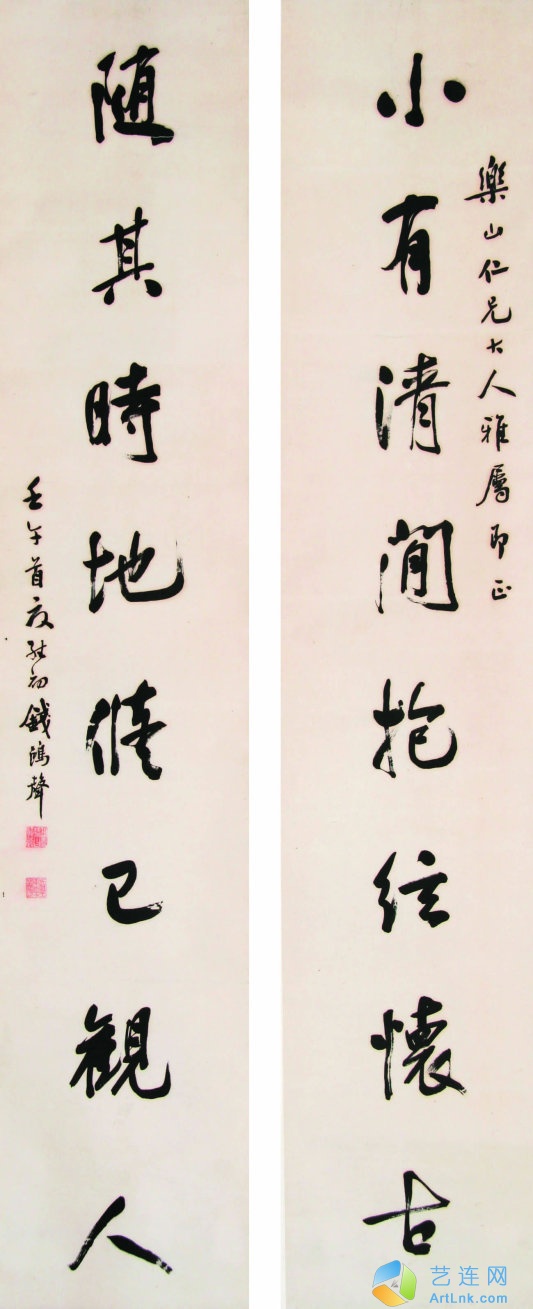 樂山仁兄大人雅屬即正
小有清閒抱絃懷古
隨其時地脩己觀人
壬午首夏初錢鴻聲
艺连网
ArtLnk.com